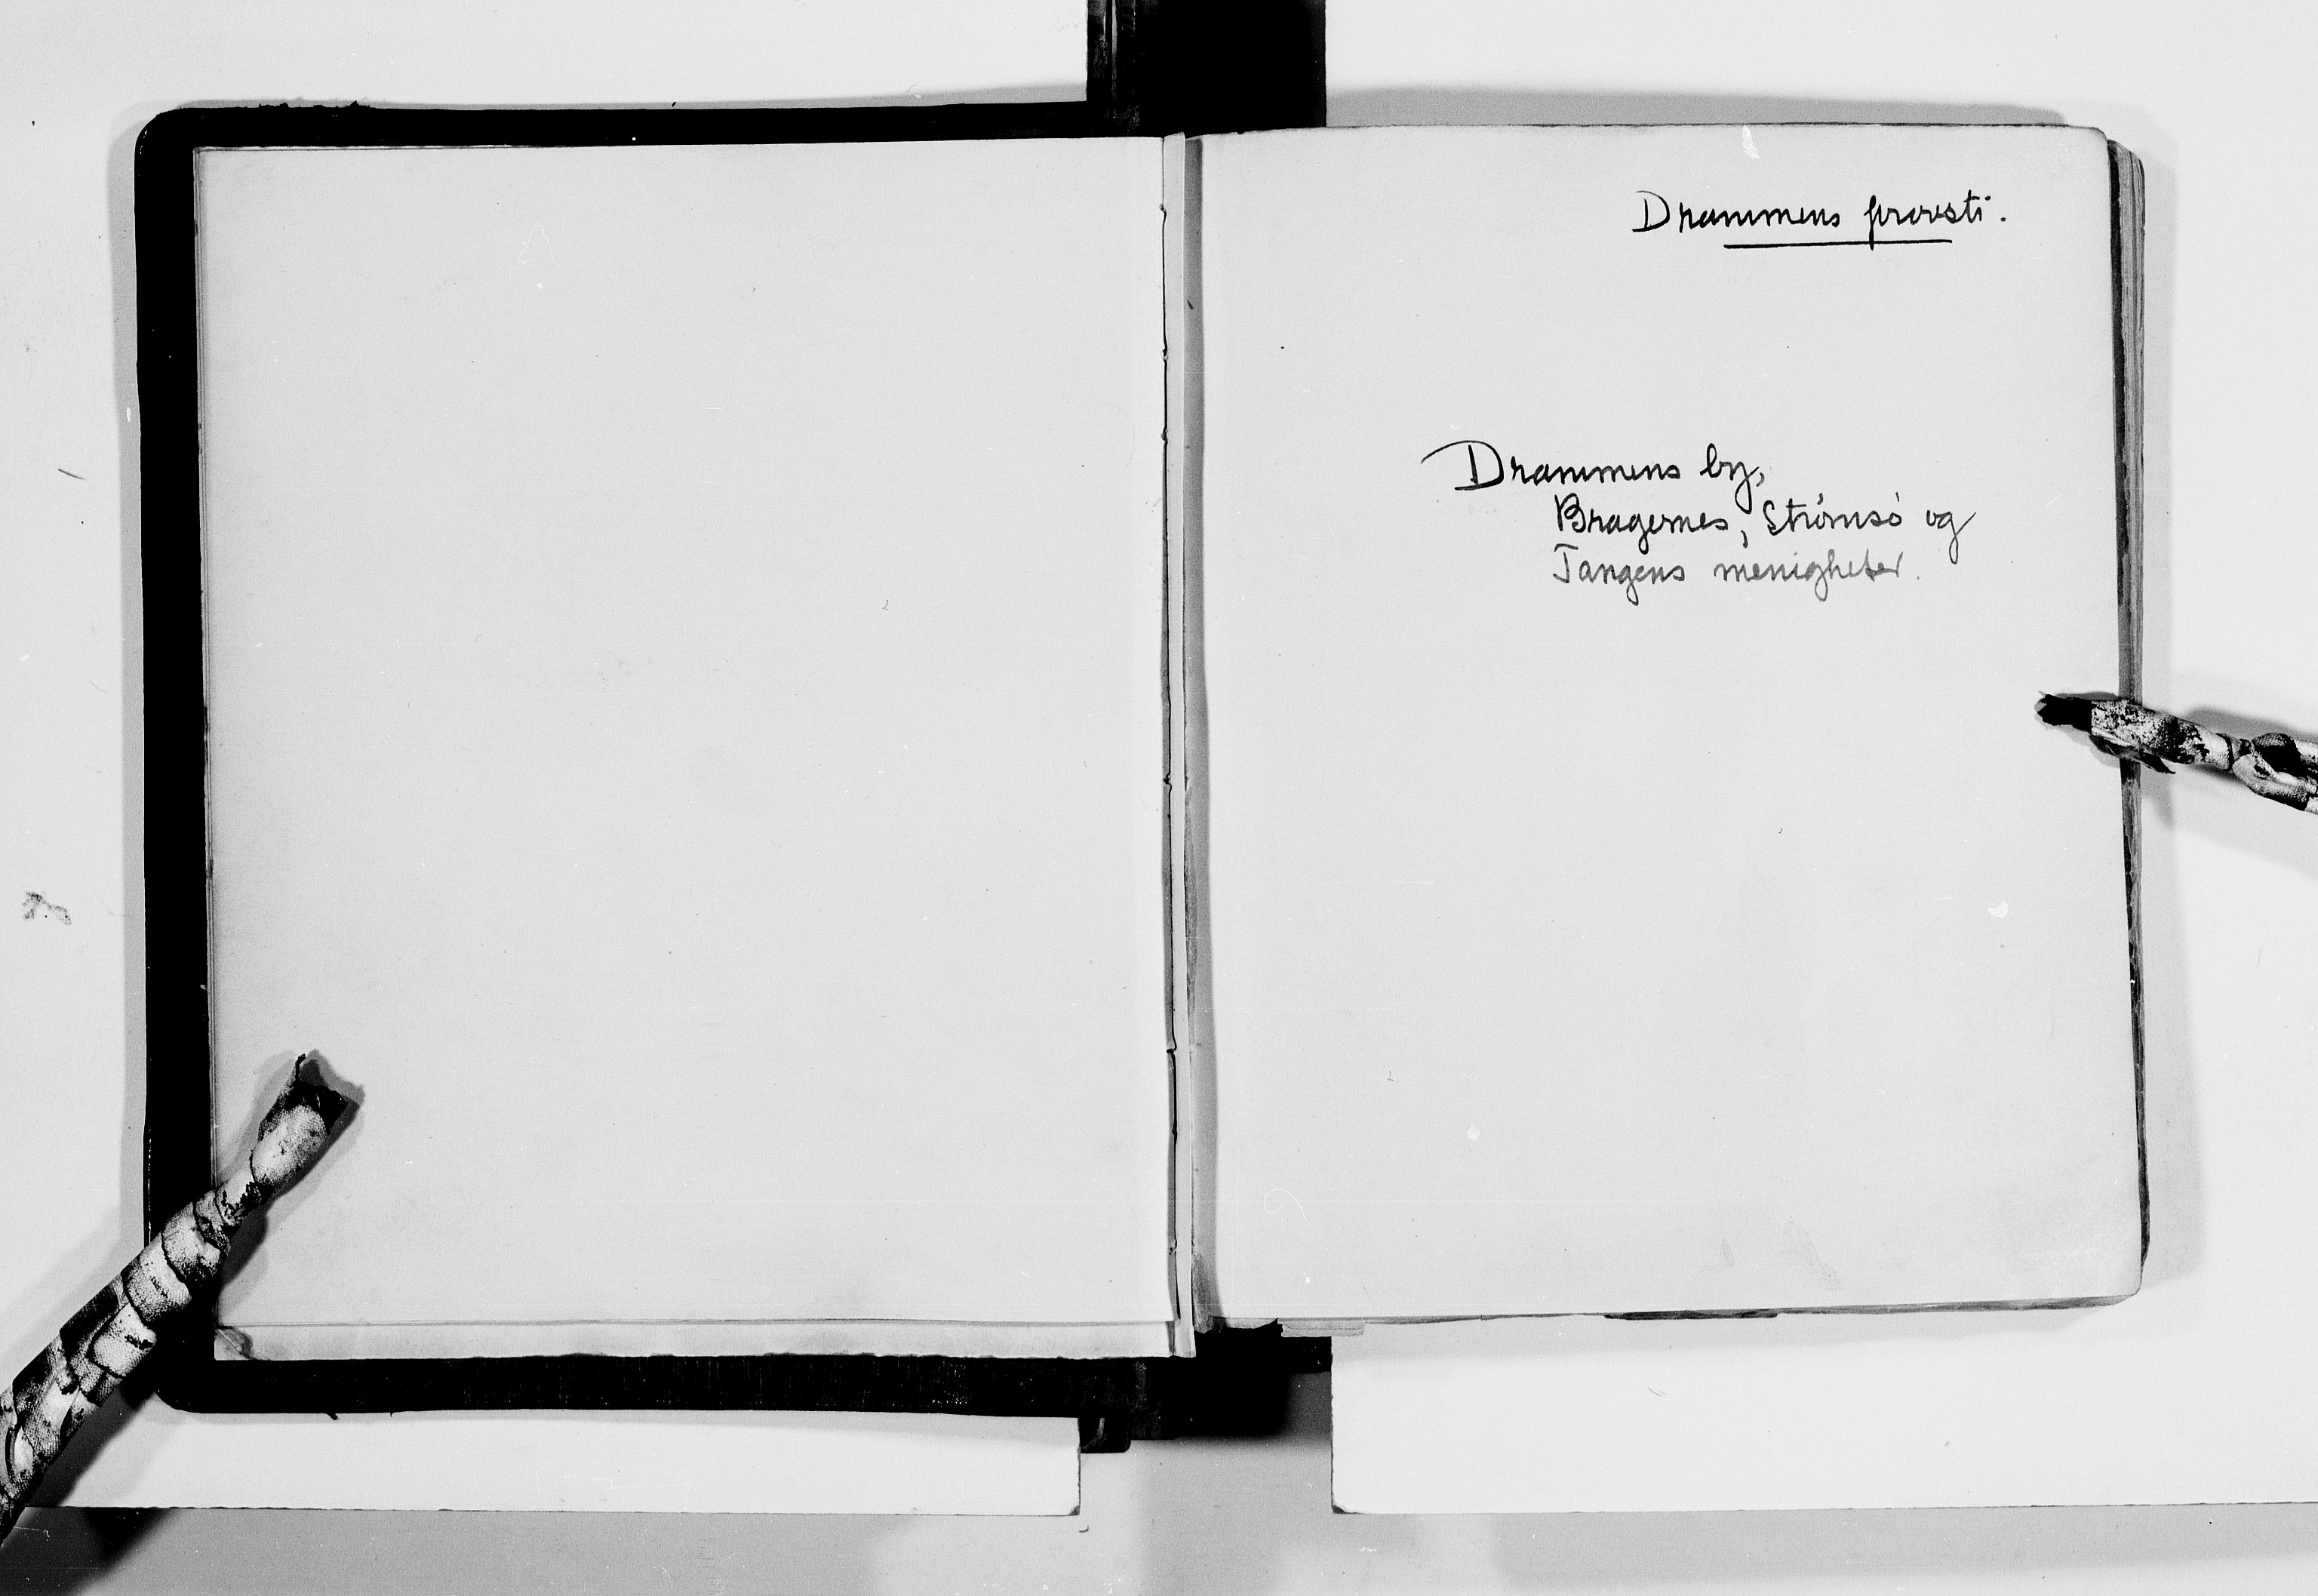 Drammens provsti.
Drammens by,
Bragernes, Strömsö og
Tangens menigheter.